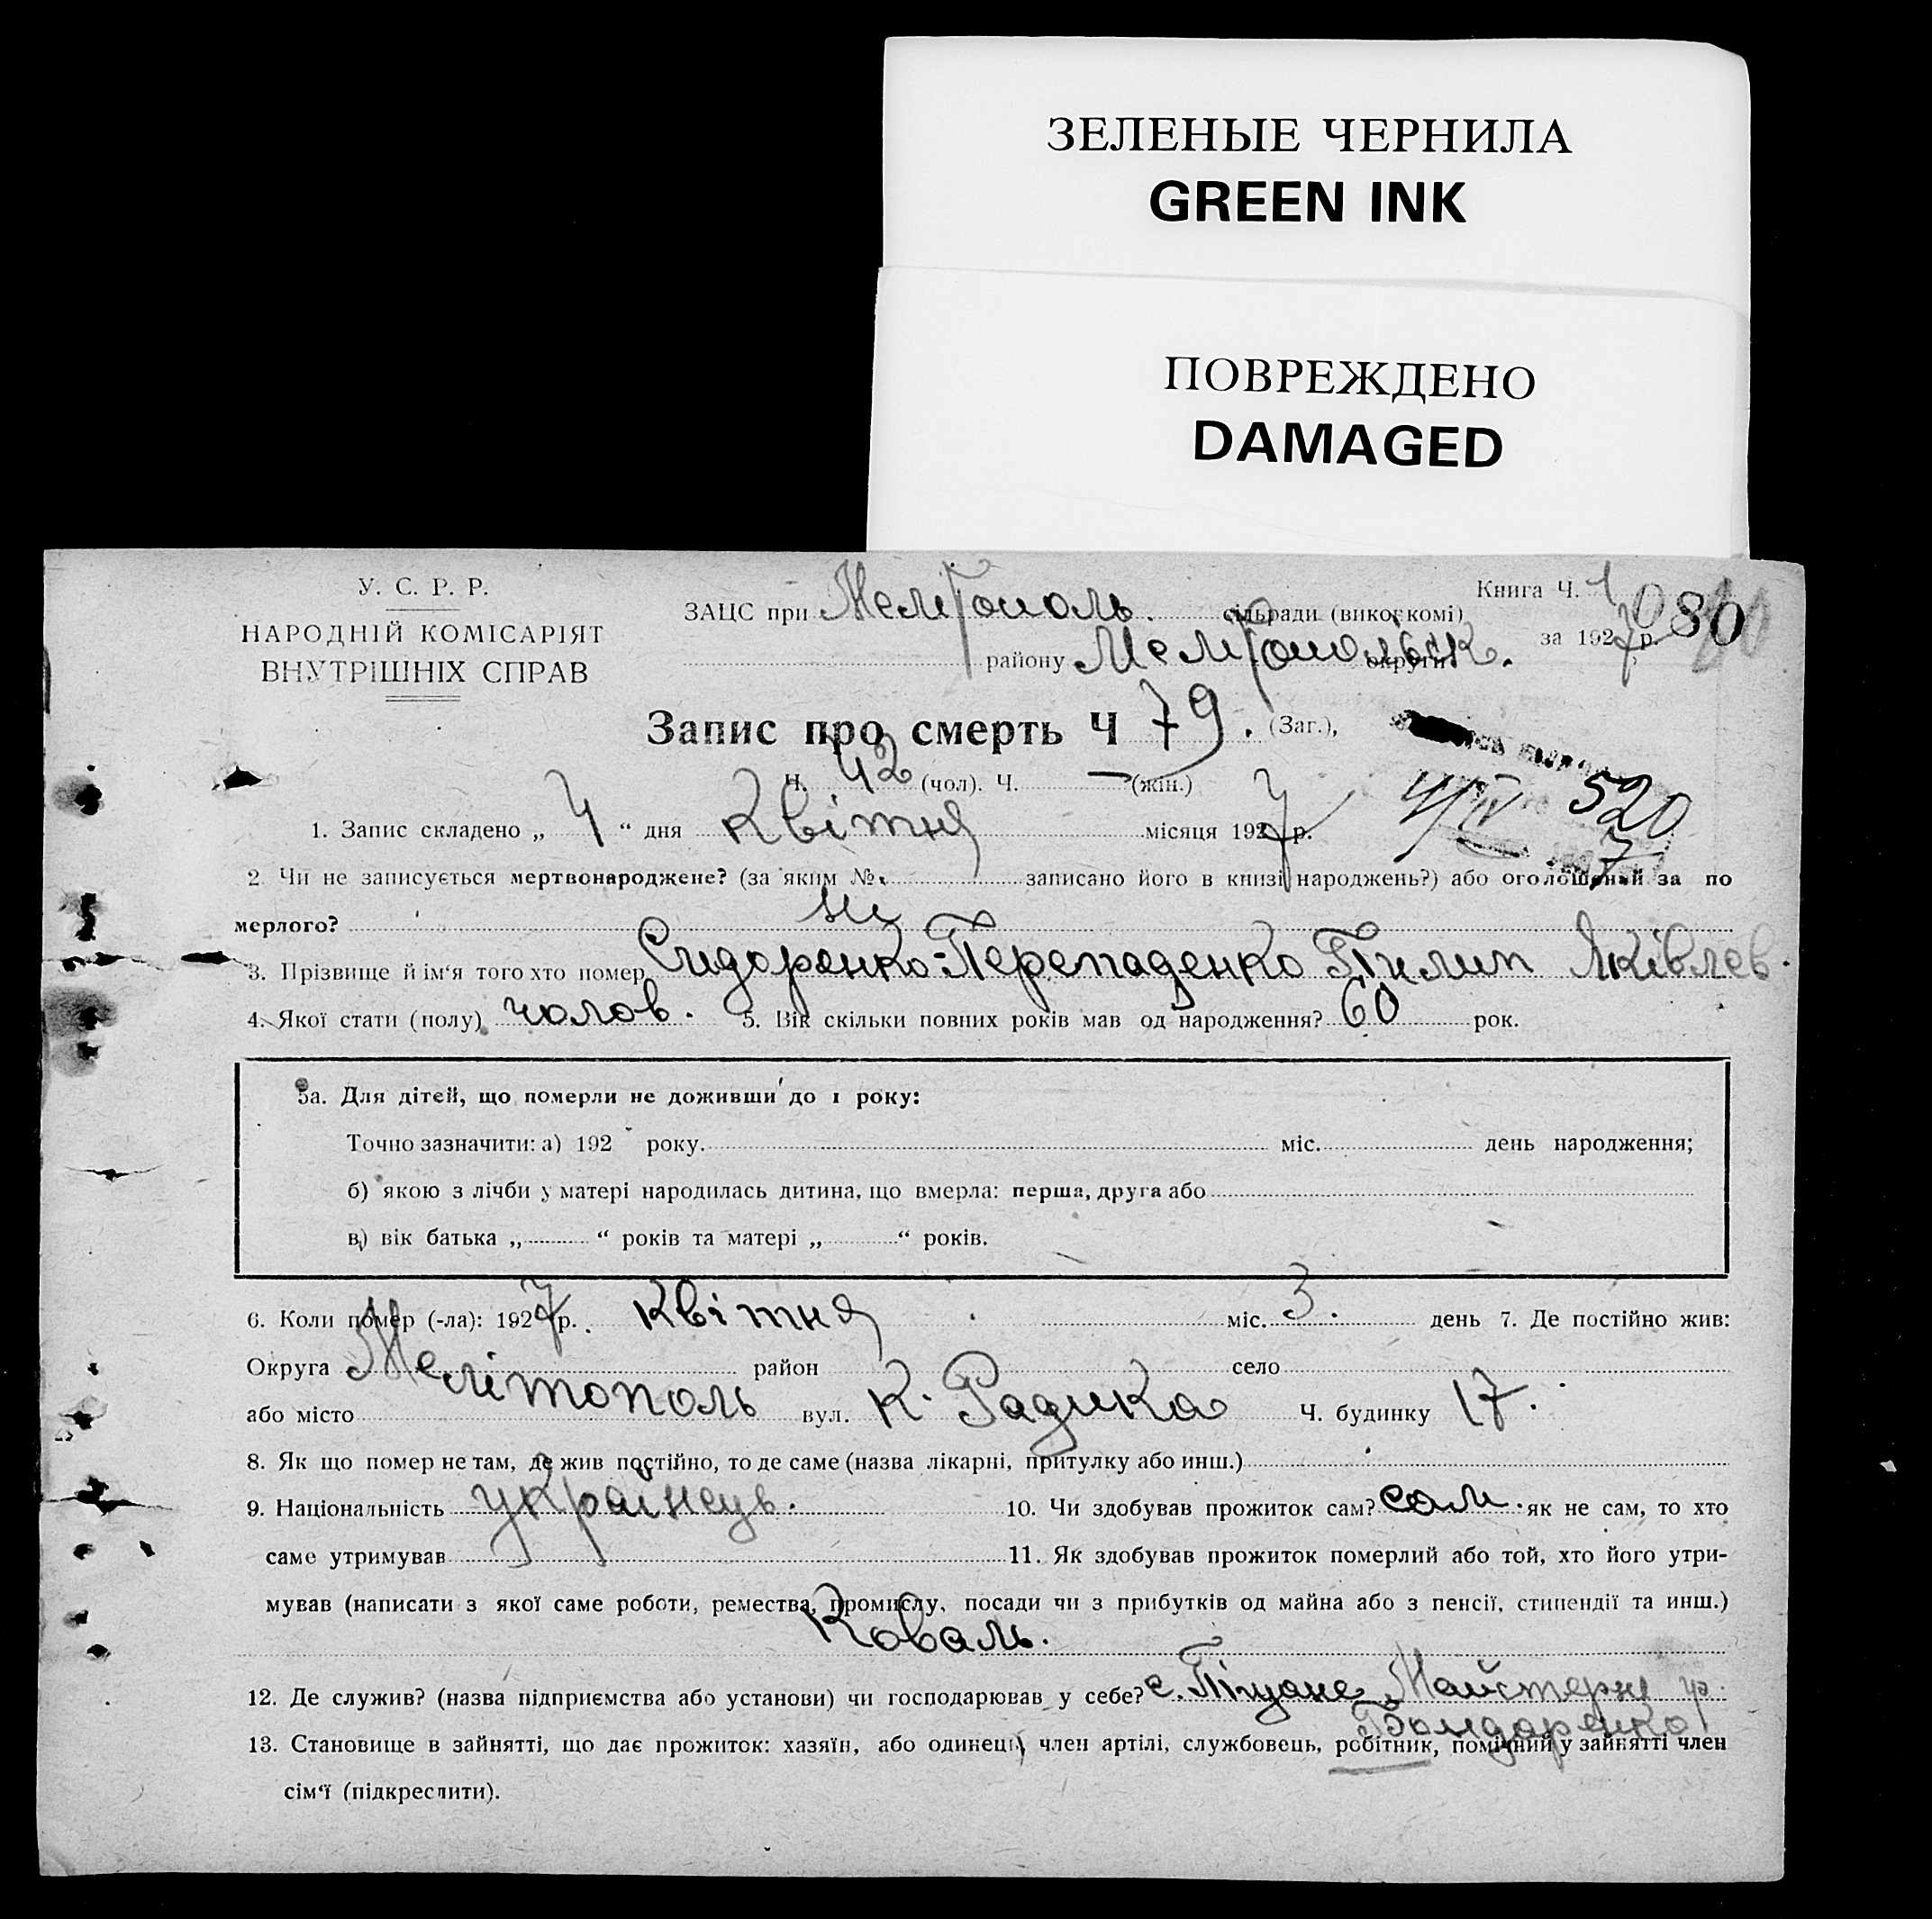 ЗЕЛЕНЫЕ ЧЕРНИЛА
GREEN INK
ПОВРЕЖДЕНО
DAMAGED
У. С. Р. Р.
НАРОДНІЙ КОМІСАРІЯТ
ВНУТРІШНІХ СПРАВ
ЗАЦС при Мелітополь. сільради (викогскомі)
району Мелітопольск. округи
Книга Ч. 1
за 1927 р.
080
Запис про смерть Ч 79. (Заг.),
Ч. 42 (чол). Ч. — (жін.)
4/IV 520
7
1. Запис складено „ 4 “ дня Квітня місяця 1927 р.
2 Чи не записується мертвонароджене? (за яким № записано його в книзі народжень?) або оголошений за по
мерлого? ні
3. Прізвище й ім'я того хто помер Сидоренко-Перепаденко Пилип Яківлев.
4. Якої стати (полу) чолов. 5. Вік скільки повних років мав од народження? 60 рок.
5а. Для дітей, що померли не доживши до 1 року:
Точно зазначити: а) 192 року. міс. день народження;
б) якою з лічби у матері народилась дитина, що вмерла: перша, друга або
в) вік батька „ “ років та матері „ “ років.
6. Коли помер (-ла): 1927 р. Квітня міс. 3. день 7. Де постійно жив:
Округа район село
або місто Мелітополь вул. К. Радика Ч. будинку 17.
8. Як що помер не там, де жив постійно, то де саме (назва лікарні, притулку або инш.)
9. Національність українець. 10. Чи здобував прожиток сам? сам. як не сам, то хто
саме утримував 11. Як здобував прожиток померлий або той, хто його утри-
мував (написати з якої саме роботи, ремества, промислу, посади чи з прибутків од майна або з пенсії, стипендії та инш.)
Коваль.
12. Де служив? (назва підприємства або установи) чи господарював у себе? с. Піщане Майстерні гр.
Бондаренко
13. Становище в зайнятті, що дає прожиток: хазяїн, або одинець, член артілі, службовець, робітник, помічний у зайнятті член
сім'ї (підкреслити).